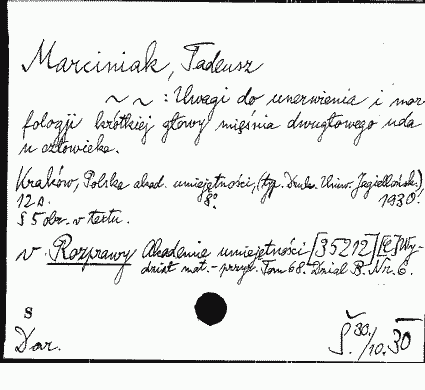 Marciniak, Tadeusz
~ ~ : Uwagi do unerwienia i mor
fologji krótkiej głowy mięśnia dwugłowego uda
u człowieka.
Kraków, Polska akad. umiejętności, (typ. Druk. Uniw. Jagiellońsk.)
12 s. 8º. 1930.
§ 5 obr. v textu.
v Rozprawy Akademie umiejętności [35212] [C] Wy-
dział mat. - przyr. Tom 68. Dział B. Nr. 6.
s
Dar.
Š 30./10. 30